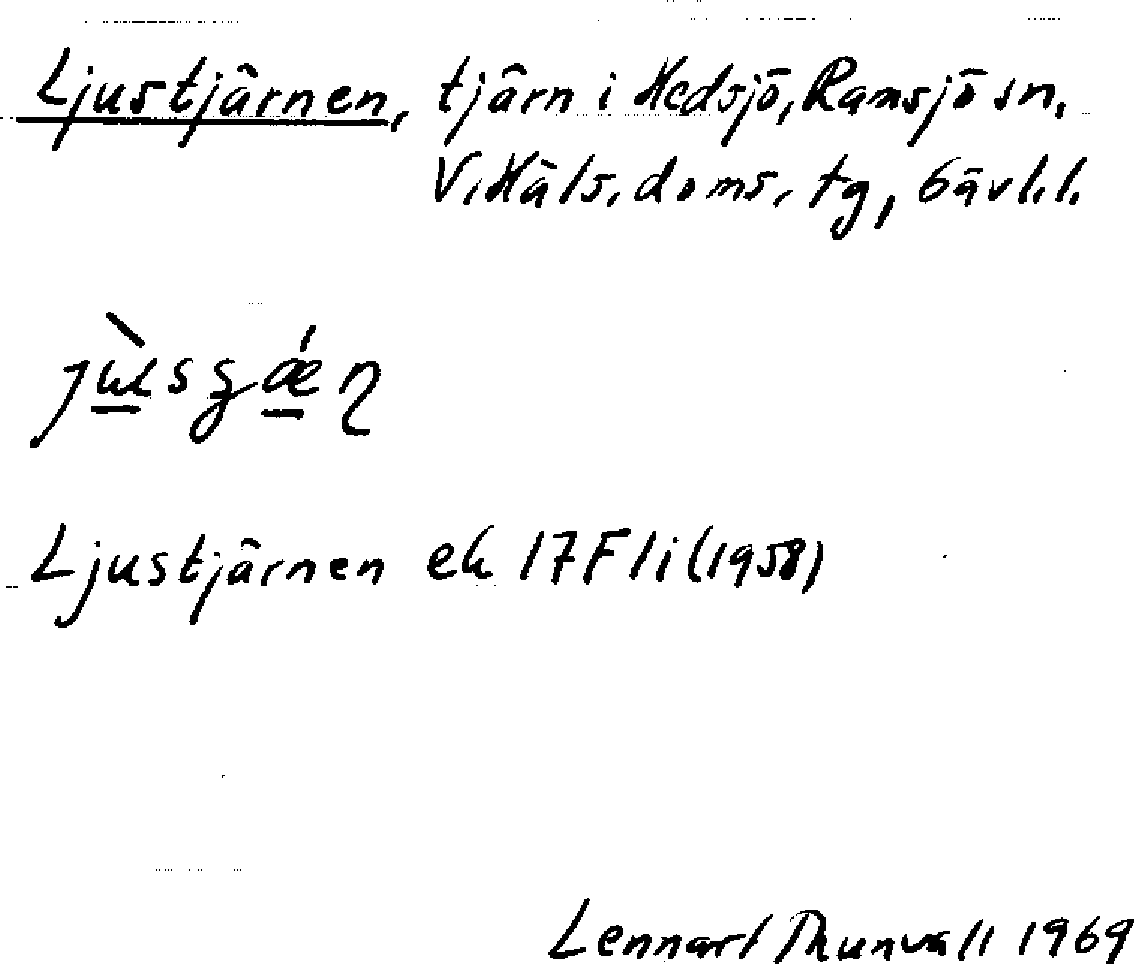 Ljustjärnen, tjärn i Hedsjö, Ramsjö sn.
V. Häls. doms. tg, Gävl. l.
Ljustjärnen ek 17F 1i (1958)
Lennart Thunvall 1969